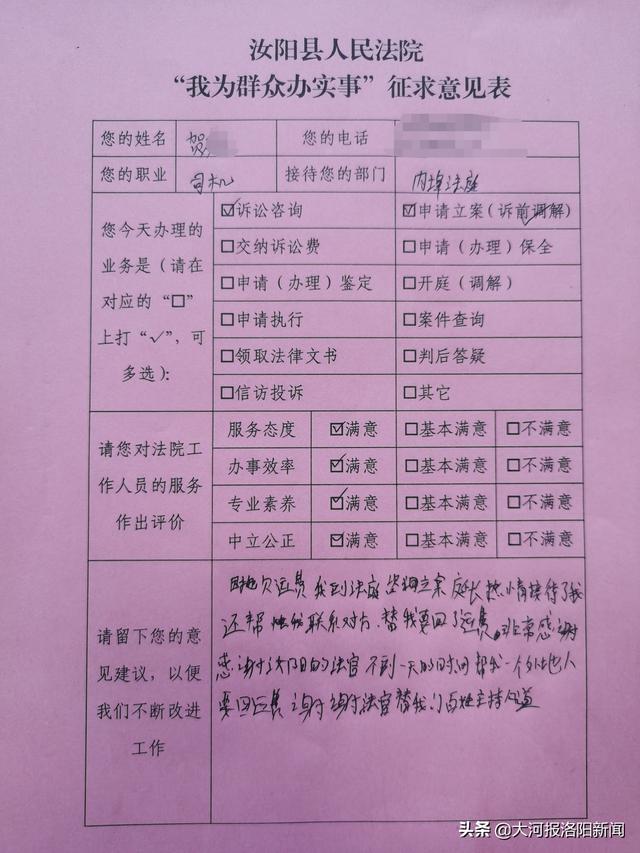 汝阳县人民法院
“我为群众办实事”征求意见表
您的姓名 贺 您的电话
您的职业 司机 接待您的部门 内埠法庭
您今天办理的业务是（请在对应的“□”上打“√”，可多选）：
☑诉讼咨询 ☑申请立案（诉前调解）
□交纳诉讼费 □申请（办理）保全
□申请（办理）鉴定 □开庭（调解）
□申请执行 □案件查询
□领取法律文书 □判后答疑
□信访投诉 □其它
请您对法院工作人员的服务作出评价
服务态度 ☑满意 □基本满意 □不满意
办事效率 ☑满意 □基本满意 □不满意
专业素养 ☑满意 □基本满意 □不满意
中立公正 ☑满意 □基本满意 □不满意
请留下您的意见建议，以便我们不断改进工作
欠运费我到法庭咨询立案庭长热情接待了我
还帮 联系对方.替我要回了运费.非常感谢
感谢 阳的法官不到一天的时间帮我一个外地人
要回运费谢谢法官替我们百姓主持公道
头条 @大河报洛阳新闻